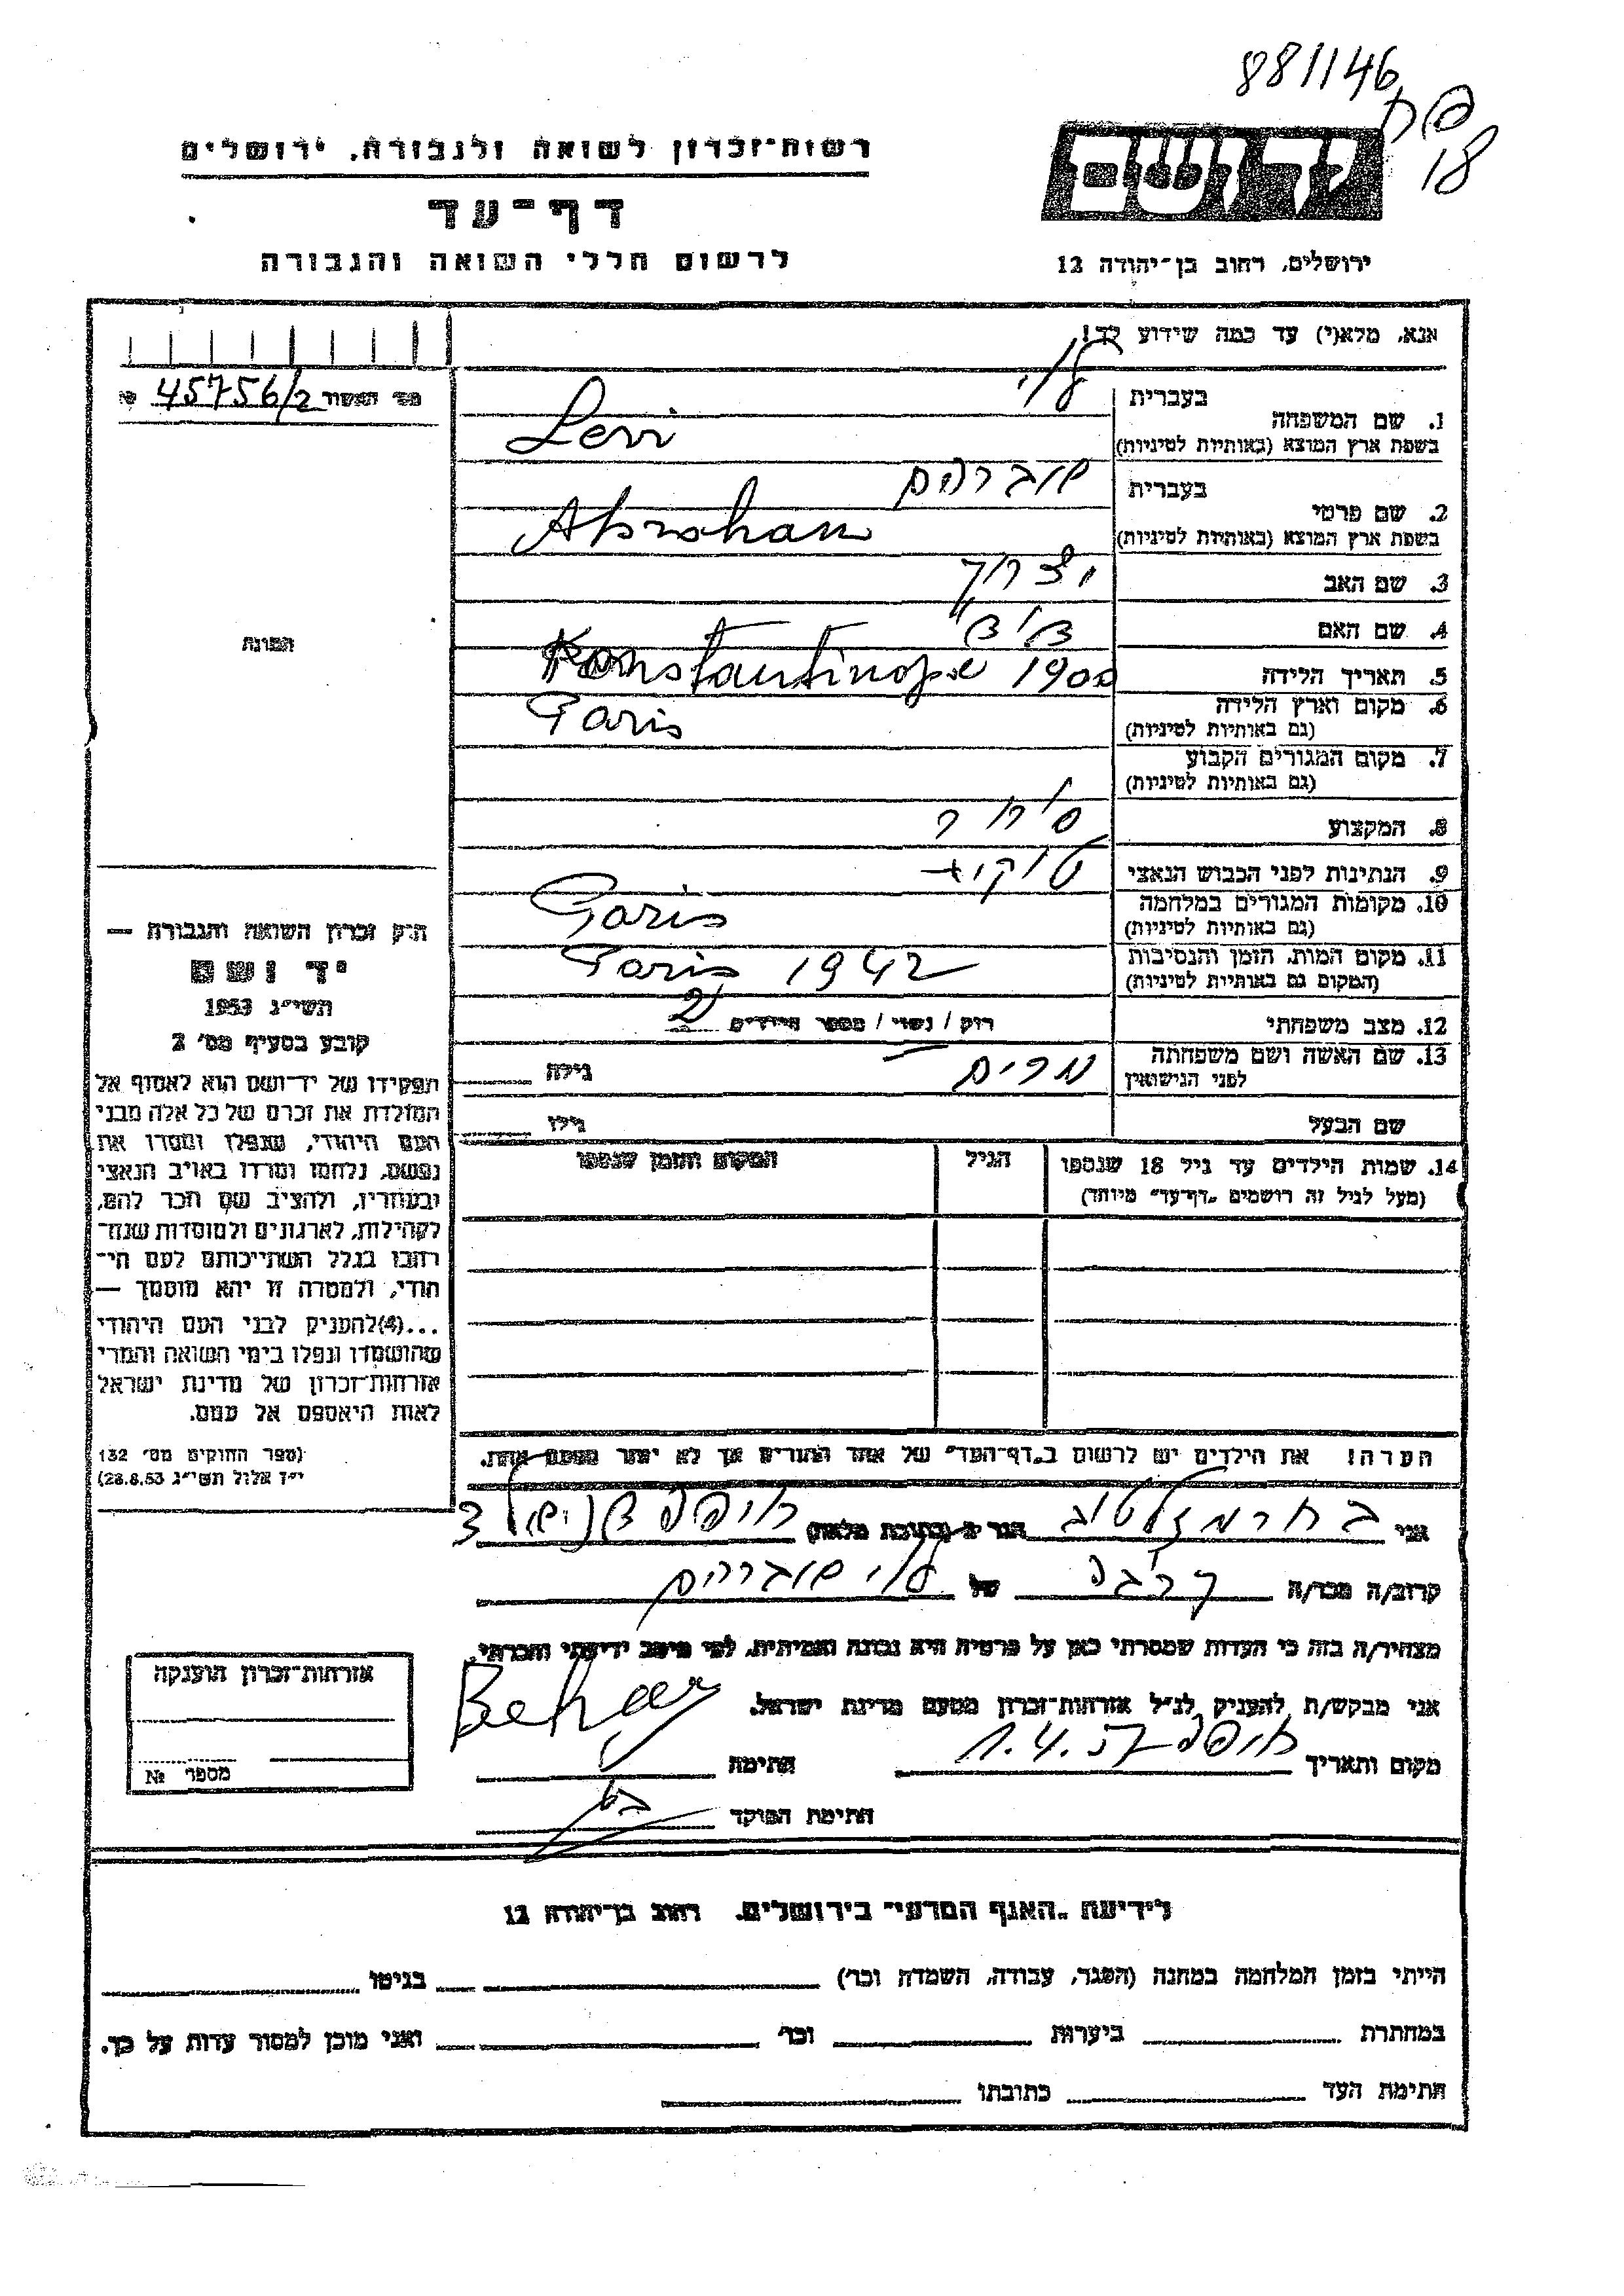 881146
18
רשות-זכרון לשואה ולגבורה, ירושלים
יד ושם
דף-עד
לרשום חללי השואה והגבורה
ירושלים, רחוב בן-יהודה 12
אנא, מלא(י) עד כמה שידוע לך!
מס׳ האשור № 45756/2
1. שם המשפחה
בעברית
לוי
בשפת ארץ המוצא (באותיות לטיניות)
Levi
2. שם פרטי
בעברית
אברהם
בשפת ארץ המוצא (באותיות לטיניות)
Abraham
3. שם האב
יצחק
4. שם האם
התמונה
5. תאריך הלידה
Konstantinope 1900
6. מקום וארץ הלידה
(גם באותיות לטיניות)
Paris
7. מקום המגורים הקבוע
(גם באותיות לטיניות)
8. המקצוע
סוחר
9. הנתינות לפני הכבוש הנאצי
10. מקומות המגורים במלחמה
(גם באותיות לטיניות)
Paris
11. מקום המות, הזמן והנסיבות
(המקום גם באותיות לטיניות)
Paris 1942
12. מצב משפחתי
רוק / נשוי / מספר הילדים 2
13. שם האשה ושם משפחתה
לפני הנישואין
מרים
גילה
שם הבעל
גילו
חק זכרון השואה והגבורה —
יד ושם
תשי״ג 1953
קובע בסעיף מס׳ 2
תפקידו של יד-ושם הוא לאסוף אל
המולדת את זכרם של כל אלה מבני
העם היהודי, שנפלו ומסרו את
נפשם, נלחמו ומרדו באויב הנאצי
ובעוזריו, ולהציב שם וזכר להם,
לקהילות, לארגונים ולמוסדות שנח-
רבו בגלל השתייכותם לעם הי-
הודי, ולמטרה זו יהא מוסמך —
...(4)להעניק לבני העם היהודי
שהושמדו ונפלו בימי השואה והמרי
אזרחות-זכרון של מדינת ישראל
לאות היאספם אל עמם.
(ספר החוקים מס׳ 132
י״ז אלול תשי״ג 28.8.53)
14. שמות הילדים עד גיל 18 שנספו
(מעל לגיל זה רושמים „דף-עד״ מיוחד)
הגיל
המקום והזמן שנספו
הערה! את הילדים יש לרשום ב„דף-העד״ של אחד ההורים אך לא יותר מפעם אחת.
אני בחר מזל טוב הגר ב (כתובת מלאה) חיפה
קרוב/ה מכר/ה קרובה של לוי אברהם
מצהיר/ה בזה כי העדות שמסרתי כאן על פרטיה היא נכונה ואמיתית, לפי מיטב ידיעתי והכרתי.
אני מבקש/ת להעניק לנ״ל אזרחות-זכרון מטעם מדינת ישראל.
Behar
מקום ותאריך חיפה 1.4.57 חתימה
חתימת הפוקד
אזרחות-זכרון הוענקה
מספר №
לידיעת „האגף המדעי״ בירושלים, רחוב בן-יהודה 12
הייתי בזמן המלחמה במחנה (הסגר, עבודה, השמדה וכו׳) בגיטו
במחתרת ביערות וכו׳ ואני מוכן למסור עדות על כך.
חתימת העד כתובתו